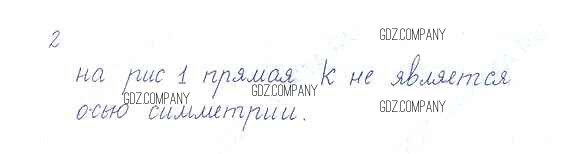 GDZ.COMPANY
2
GDZ.COMPANY
на рис 1 прямая К не является
GDZ.COMPANY
GDZ.COMPANY GDZ.COMPANY
осью симметрии.